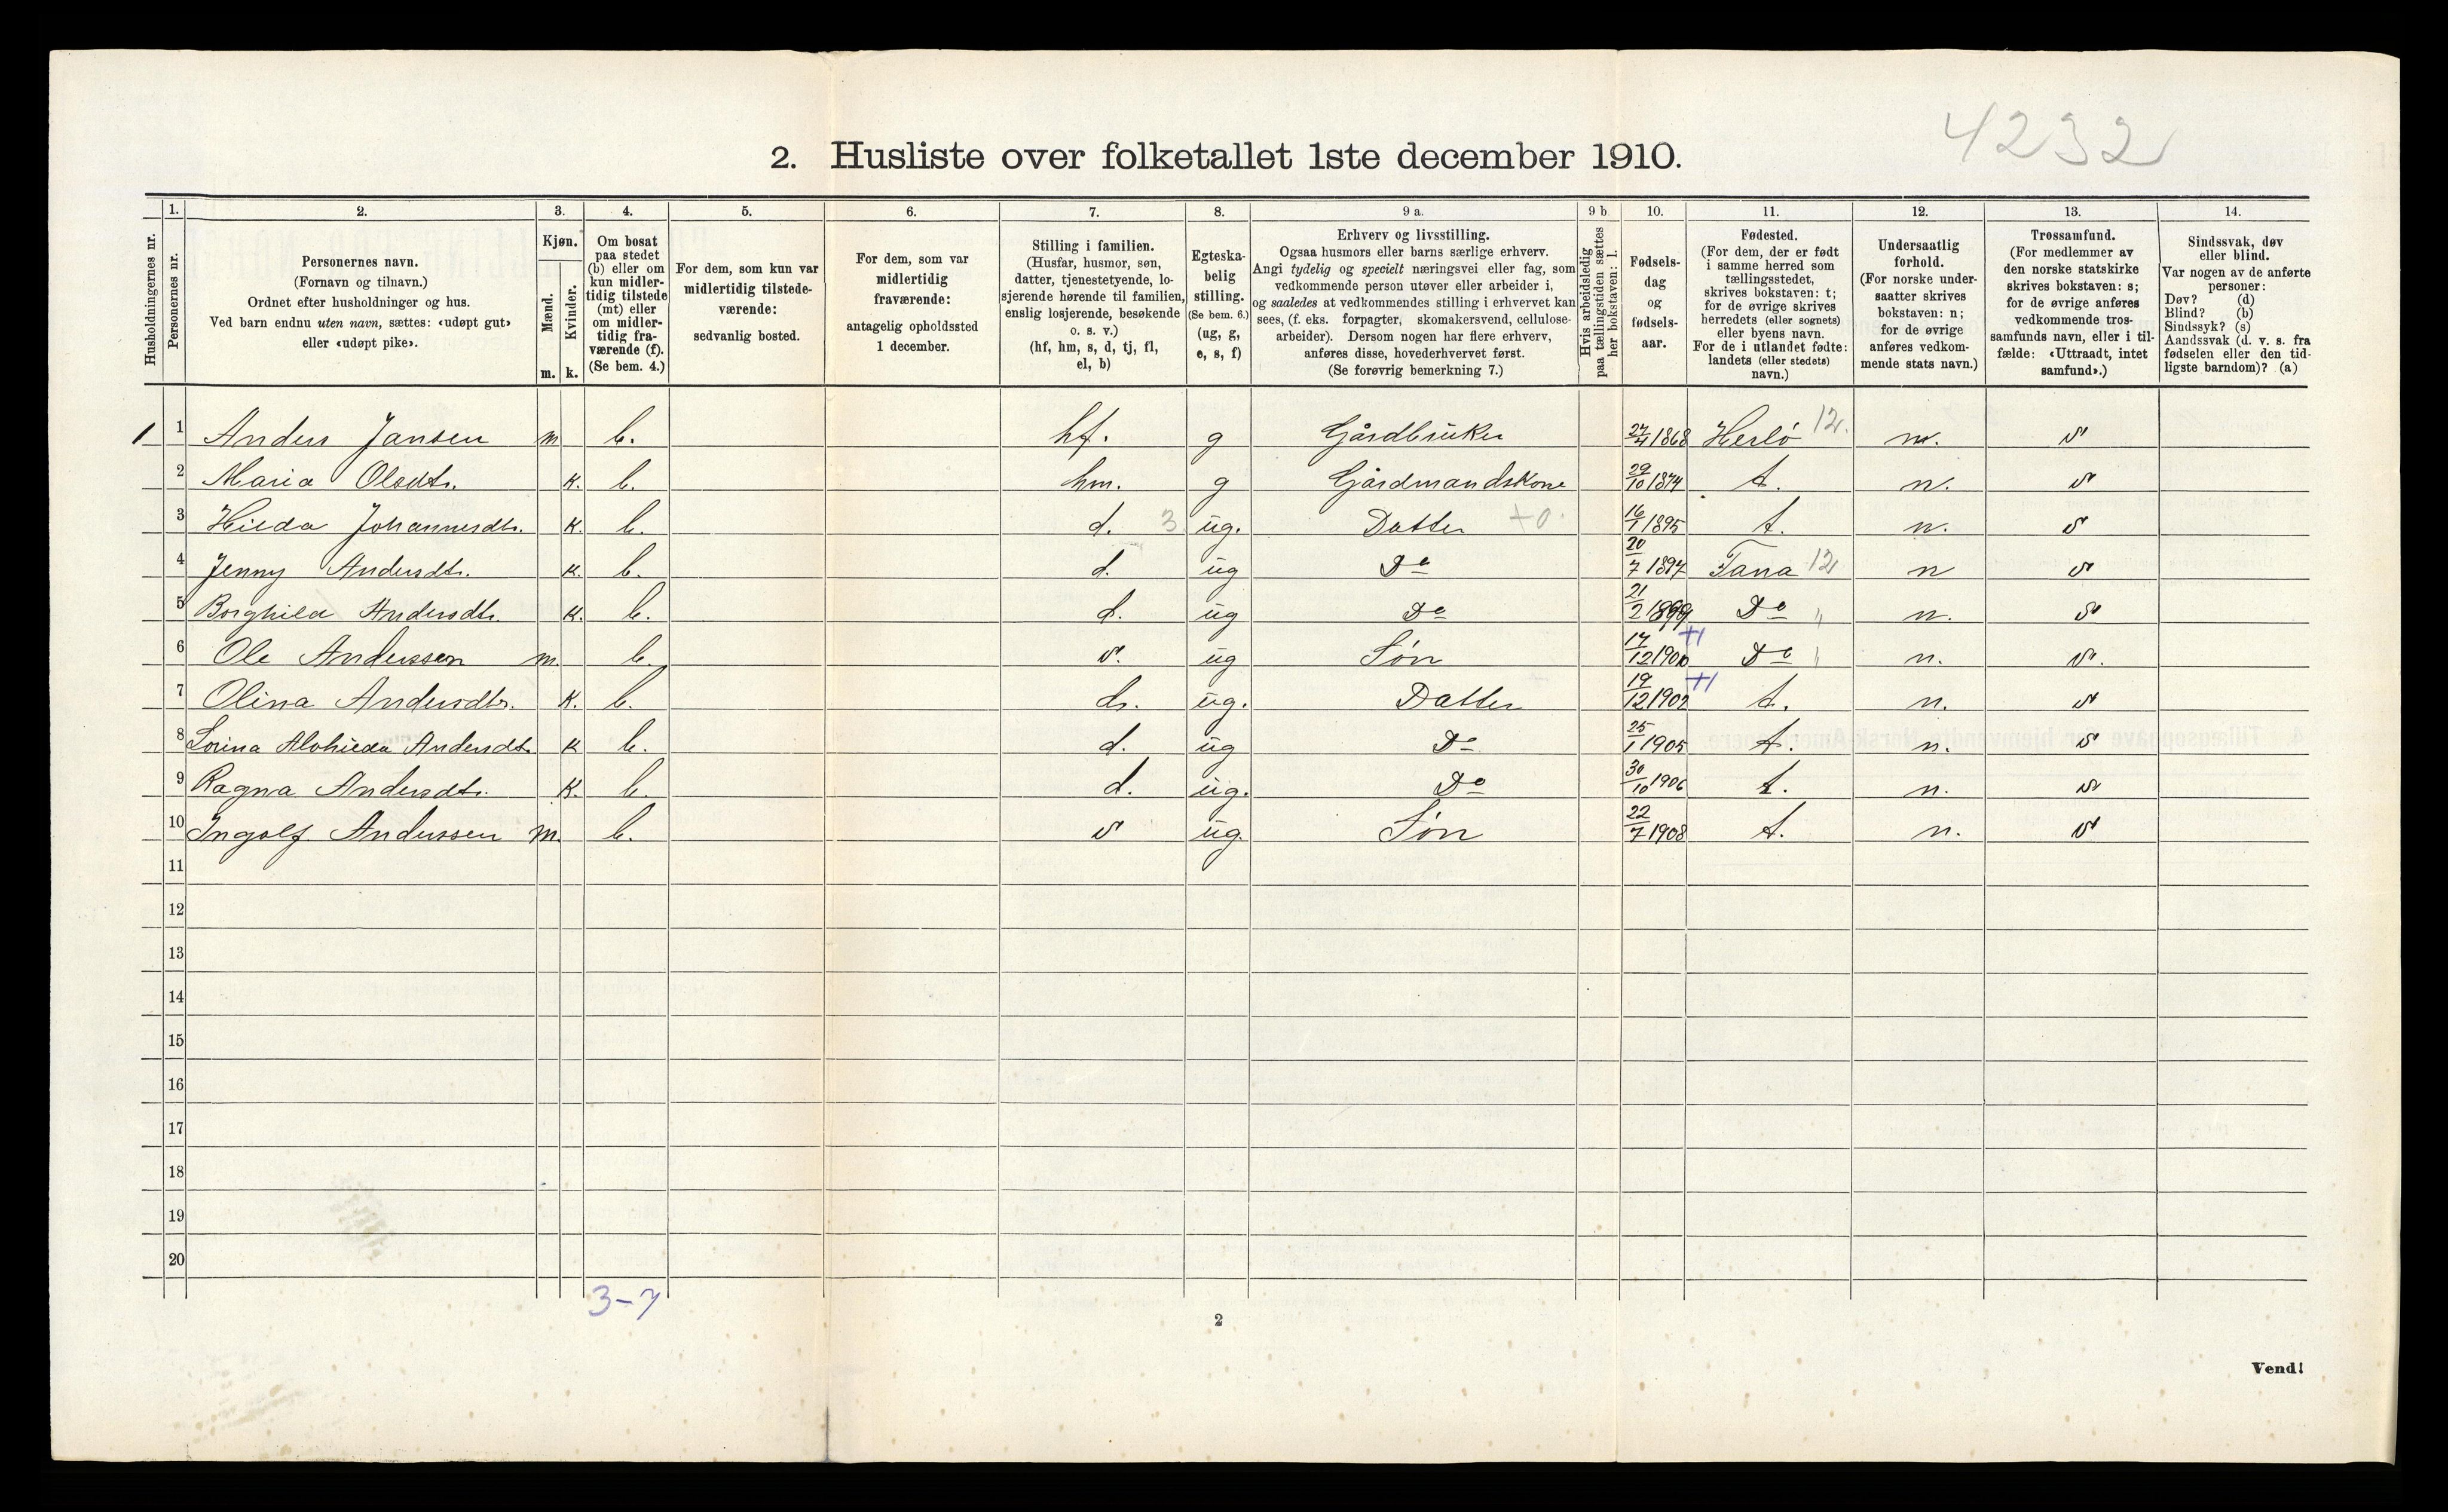 4232
2. Husliste over folketallet 1ste december 1910.
Husholdningernes nr.
1. Personernes nr.
2.
Personernes navn.
(Fornavn og tilnavn.)
Ordnet efter husholdninger og hus.
Ved barn endnu uten navn, sættes: «udøpt gut»
eller «udøpt pike».
3.
Kjøn.
Mænd. Kvinder.
m. k.
4.
Om bosat
paa stedet
(b) eller om
kun midler-
tidig tilstede
(mt) eller
om midler-
tidig fra-
værende (f).
(Se bem. 4.)
5.
For dem, som kun var
midlertidig tilstede-
værende:
sedvanlig bosted.
6.
For dem, som var
midlertidig
fraværende:
antagelig opholdssted
1 december.
7.
Stilling i familien.
(Husfar, husmor, søn,
datter, tjenestetyende, lo-
sjerende hørende til familien,
enslig losjerende, besøkende
o. s. v.)
(hf, hm, s, d, tj, fl,
el, b)
8.
Egteska-
belig
stilling.
(Se bem. 6.)
(ug, g,
e, s, f)
9 a.
Erhverv og livsstilling.
Ogsaa husmors eller barns særlige erhverv.
Angi tydelig og specielt næringsvei eller fag, som
vedkommende person utøver eller arbeider i,
og saaledes at vedkommendes stilling i erhvervet kan
sees, (f. eks. forpagter, skomakersvend, cellulose-
arbeider). Dersom nogen har flere erhverv,
anføres disse, hovederhvervet først.
(Se forøvrig bemerkning 7.)
9 b
Hvis arbeidsledig
paa tællingstiden sættes
her bokstaven: l.
10.
Fødsels-
dag
og
fødsels-
aar.
11.
Fødested.
(For dem, der er født
i samme herred som
tællingsstedet,
skrives bokstaven: t;
for de øvrige skrives
herredets (eller sognets)
eller byens navn.
For de i utlandet fødte:
landets (eller stedets)
navn.)
12.
Undersaatlig
forhold.
(For norske under-
saatter skrives
bokstaven: n;
for de øvrige
anføres vedkom-
mende stats navn.)
13.
Trossamfund.
(For medlemmer av
den norske statskirke
skrives bokstaven: s;
for de øvrige anføres
vedkommende tros-
samfunds navn, eller i til-
fælde: «Uttraadt, intet
samfund».)
14.
Sindssvak, døv
eller blind.
Var nogen av de anførte
personer:
Døv? (d)
Blind? (b)
Sindssyk? (s)
Aandssvak (d. v. s. fra
fødselen eller den tid-
ligste barndom)? (a)
1 1 Anders Jansen m b. hf. g Gårdbruker 27/4 1868 Herlö 12. n. s
2 Maria Olsdtr. k. b. hm. g Gårdmandskone 29/10 1874 t. n. s
3 Hilda Johannesdtr. k. b. d. 3 ug. Datter +0. 16/1 1895 t. n. s
4 Jenny Andersdtr. k. b. d. ug Do 20/7 1897 Fana 12 n s
5 Borghild Andersdtr. k. b. d. ug Do 21/2 1899 Do " n. s
6 Ole Anderssen m. b. s. ug Søn 17/12 1900 +1 Do " n. s.
7 Olina Andersdtr. k. b. d. ug. Datter 19/12 1902 +1 t. n. s
8 Andersdtr. k b. d. ug Do 25/1 1905 t. n. s
9 Ragna Andersdtr. k. b. d. ug. Do 30/10 1906 t. n. s
10 Ingolf Anderssen m. b. s ug. Søn 22/7 1908 t. n. s
11
12
13
14
15
16
17
18
19
20
3-7
2
Vend!